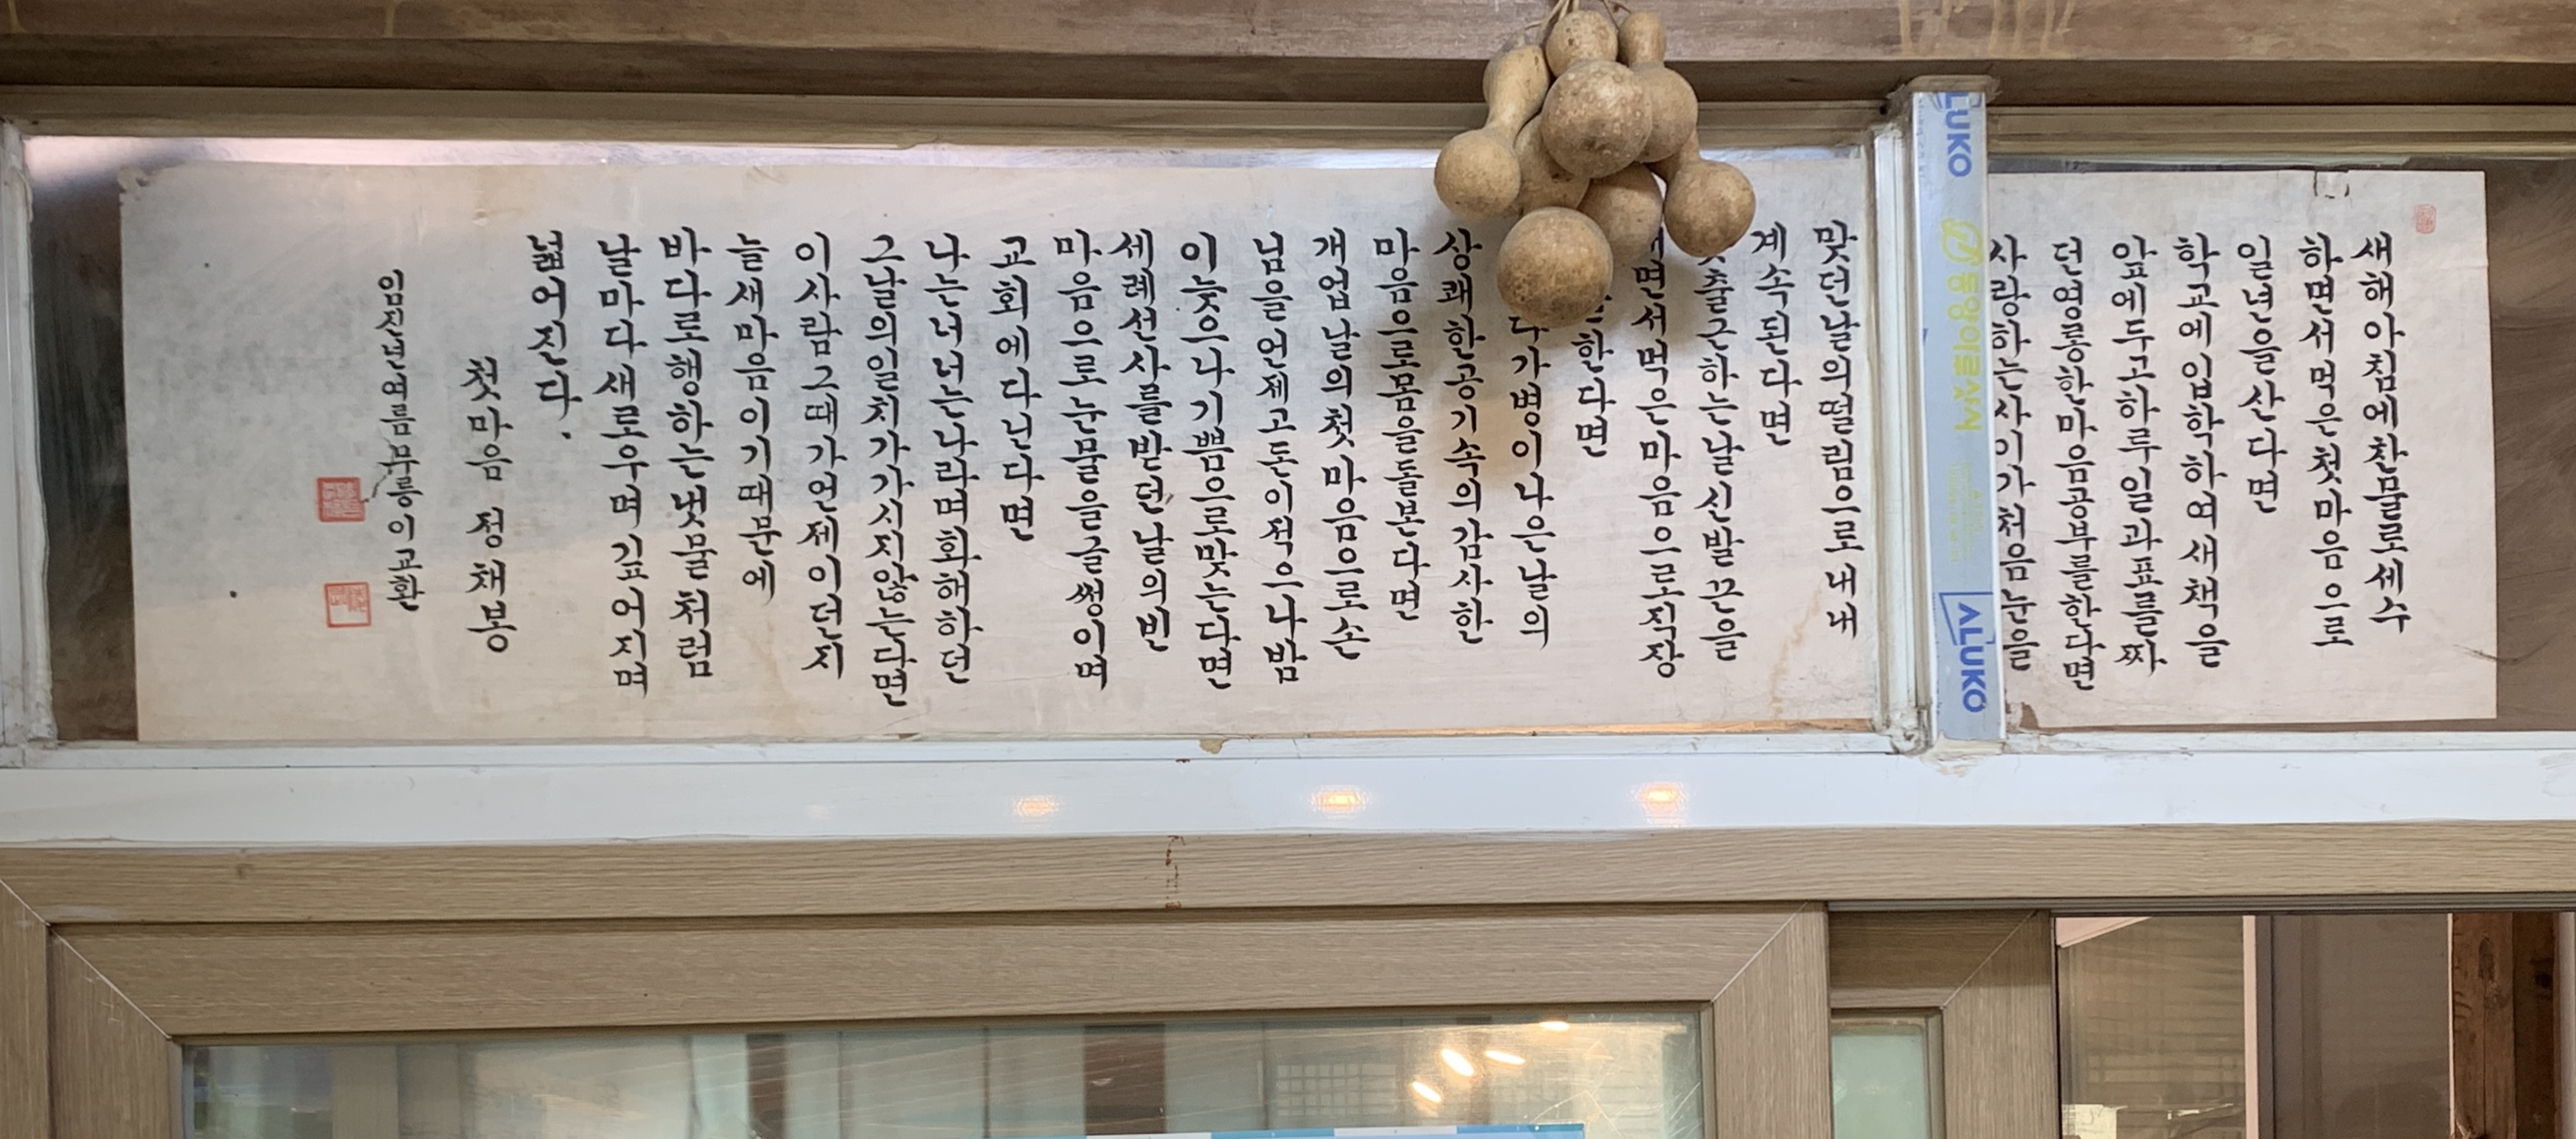 새해아침에찬물로세수
하면서먹은첫마음으로
일년을산다면
학교에입학하여새책을
앞에두고하루일과표를짜
던영롱한마음공부를한다면
사랑하는사이가처음눈을
맞던날의떨림으로내내
계속된다면
출근하는날신발끈을
면서먹은마음으로직장
한다면
다가병이나은날의
상쾌한공기속의감사한
마음으로몸을돌본다면
개업날의첫마음으로손
님을언제고돈이적으나밤
이늦으나기쁨으로맞는다면
세례선사를받던날의빈
마음으로눈물을글썽이며
교회에다닌다면
나는너너는나라며화해하던
그날의일치가가시지않는다면
이사람그때가언제이던지
늘새마음이기때문에
바다로행하는냇물처럼
날마다새로우며깊어지며
넓어진다.
첫마음 정채봉
임진년여름무릉이교환
LUKO
동양이롭샷시
ALUKO